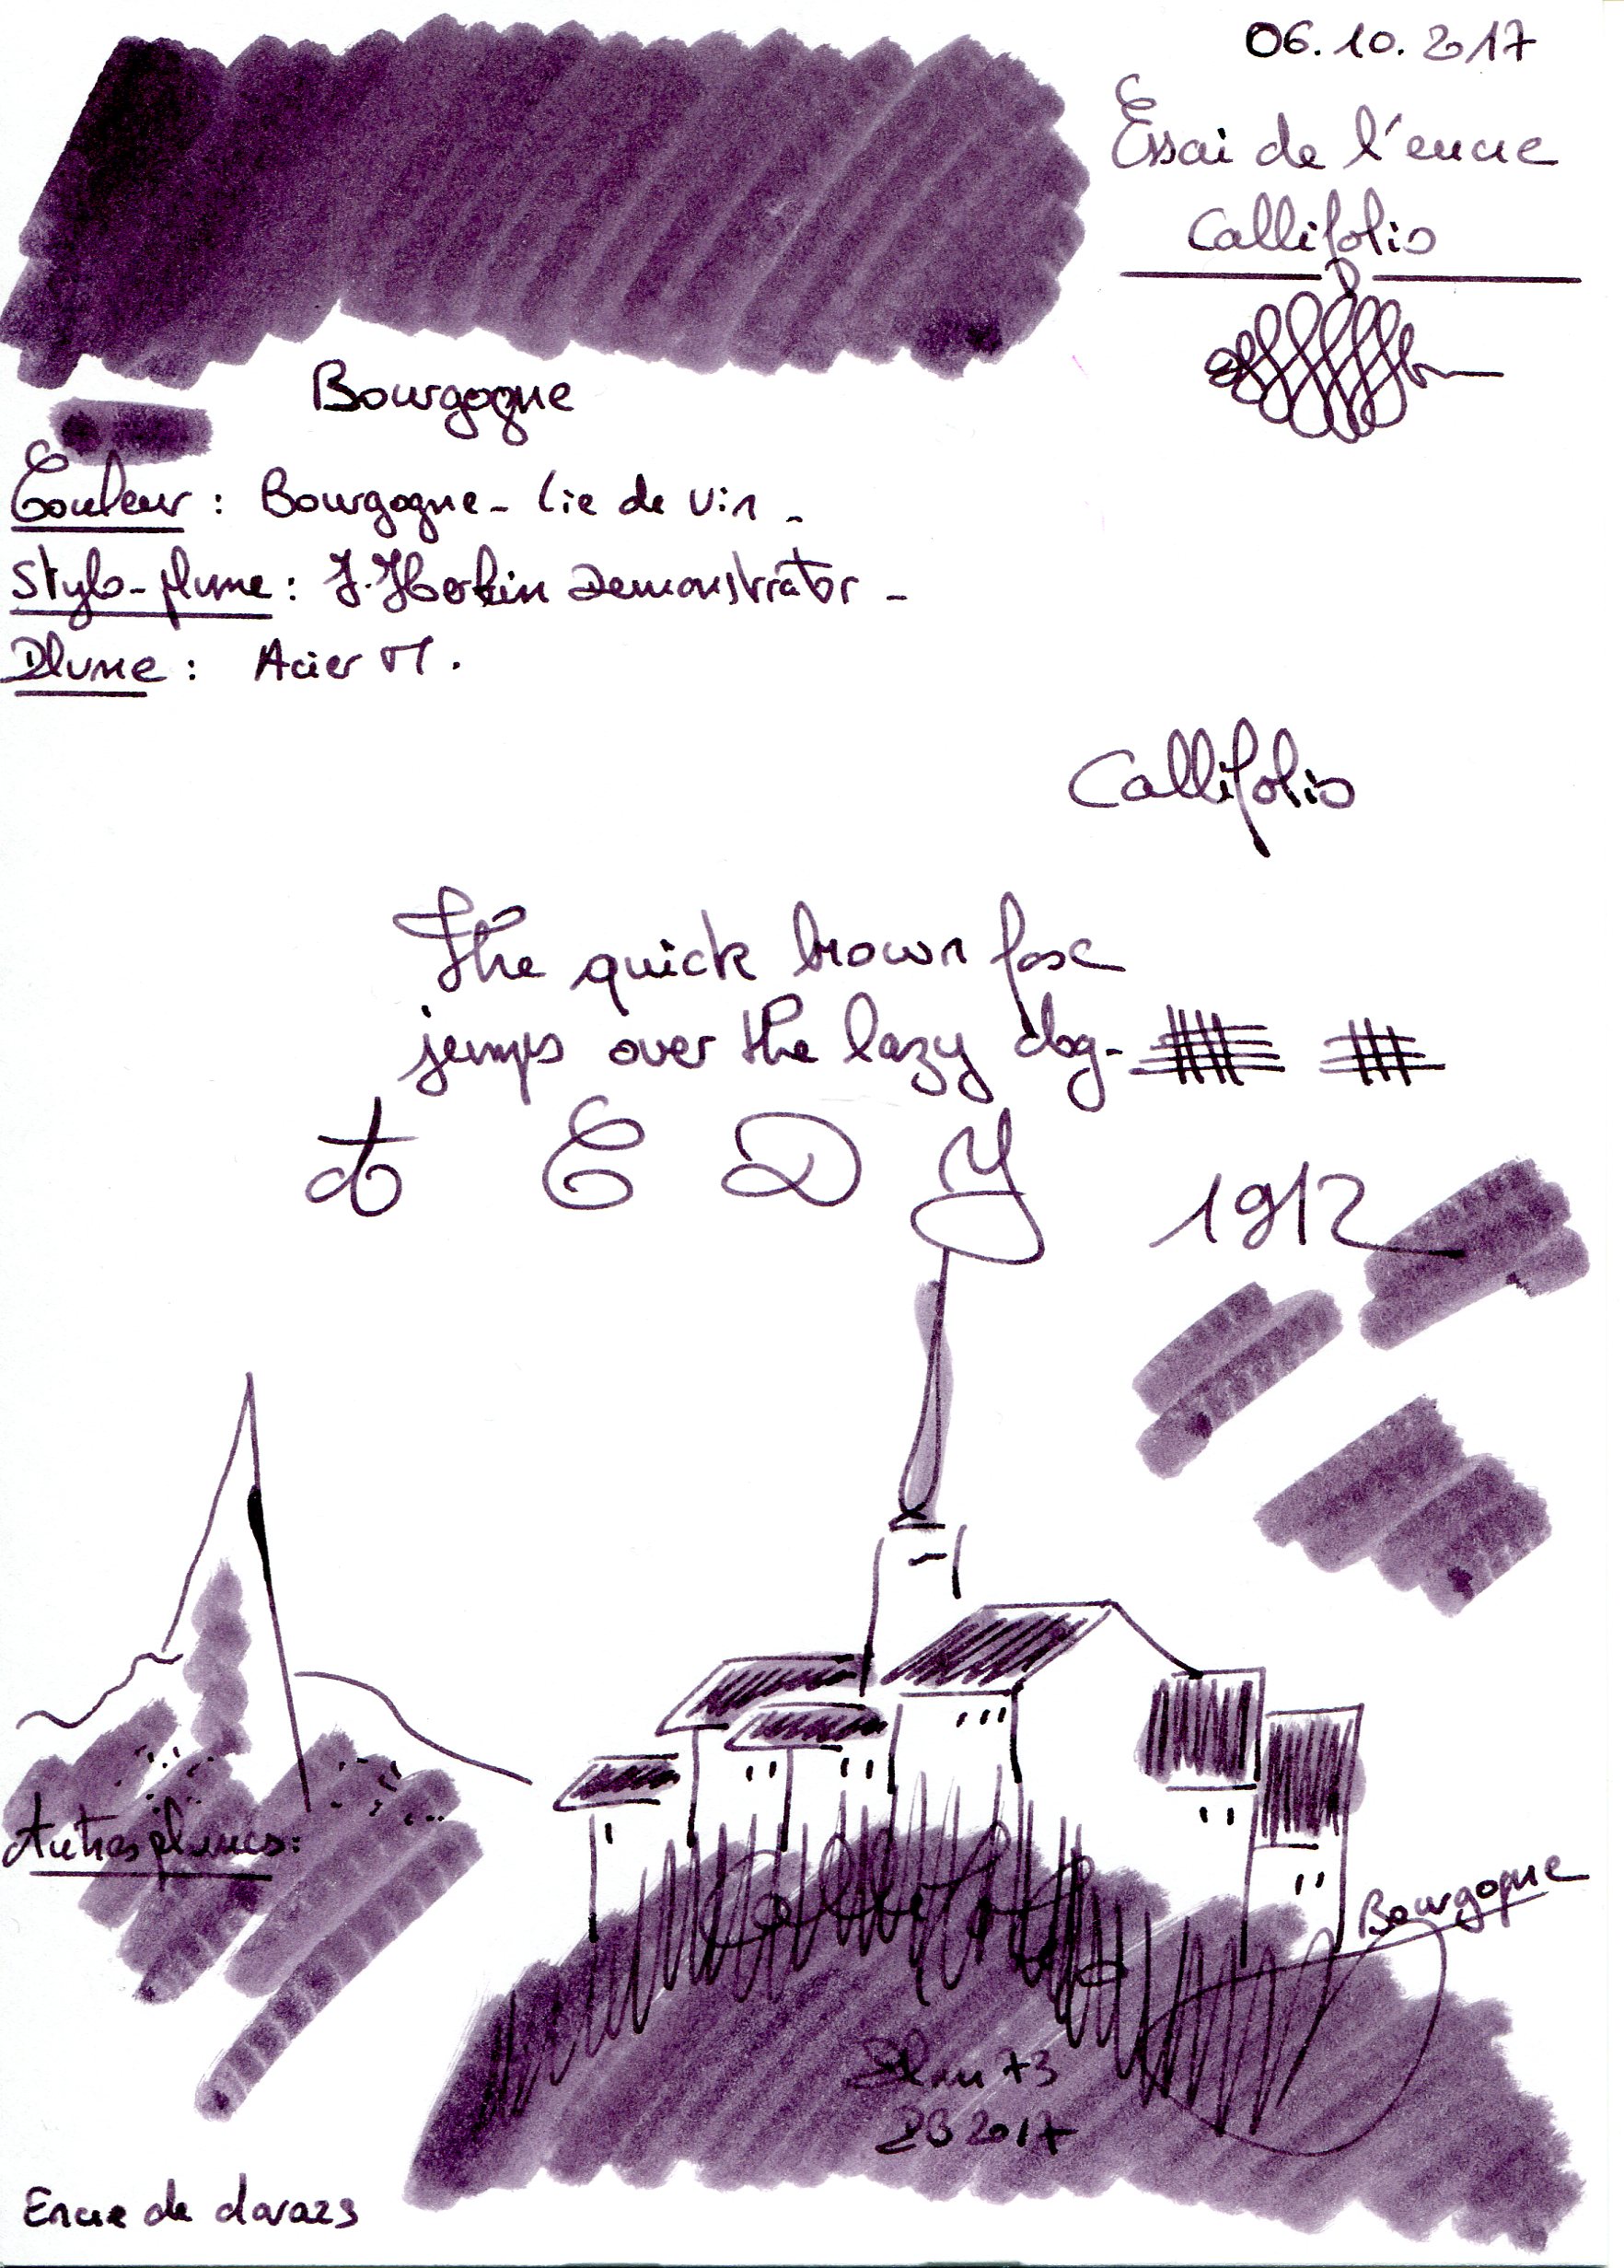 06.10.2017
Essai de l'encre
Callifolio
Bourgogne
Couleur : Bourgogne - Lie de vin -
Stylo-plume : J. Herbin Demonstrator -
Plume : Acier M.
Callifolio
The quick brown fox
jumps over the lazy dog -
E D Y
1912
Autres plumes :
Bourgogne
2017
Encre de